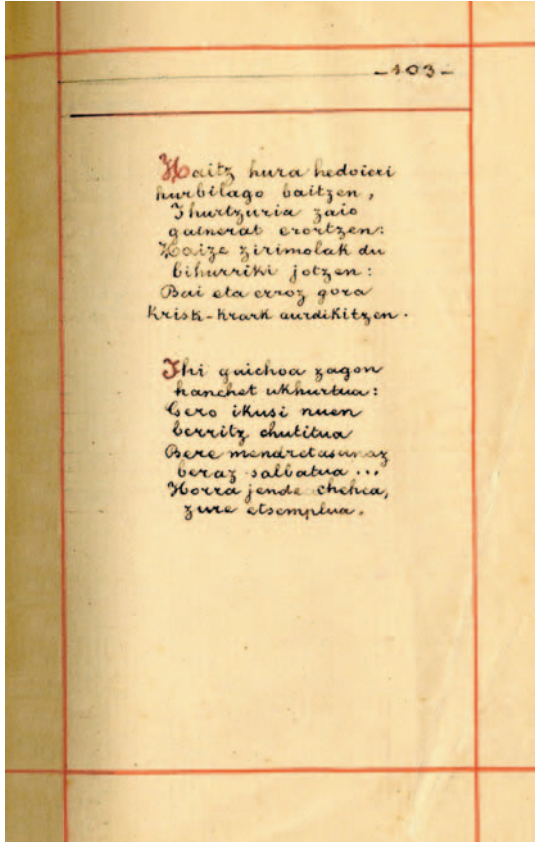 -103-
Haitz hura hedoieri
hurbilago baitzen,
Ihurtzuria zaio
gainerat erortzen:
Haize zirimolak du
bihurriki jotzen:
Bai eta erroz gora
Krisk-Krark aurdikitzen.
Ihi gaichoa zagon
hanchet ukhurtua:
Gero ikusi nuen
berritz chutitua
Bere mendretasunaz
beraz salbatua...
Horra jende chehea,
zure etsemplua.